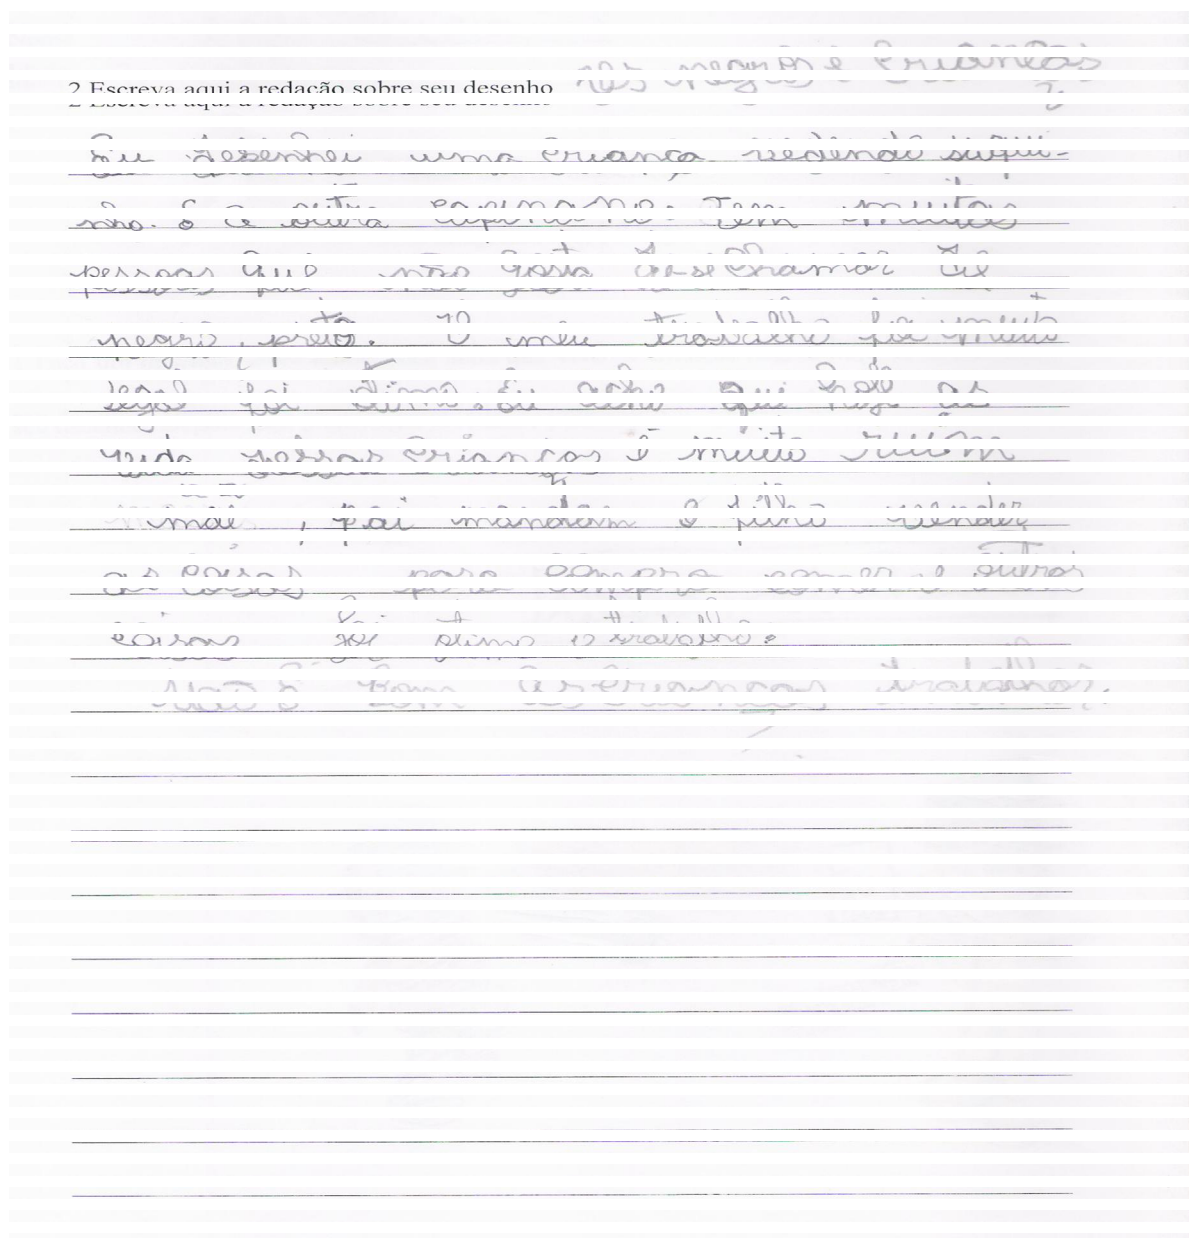 nós negros e Crianças
2 Escreva aqui a redação sobre seu desenho
Eu desenhei uma criança vedendo suqui-
nho. E a outra capinano. Tem muitas
pessoas que não gosta de se chamar de
negro, preto. O meu trabalho foi muito
legal foi otimo. Eu acho que hoje as
vida dessas crianças é muito ruim
mãe, pai mandam o filho vender
as coisas para compra comer e outras
coisas foi otimo o trabalho.
Não é bom as crianças trabalhar.